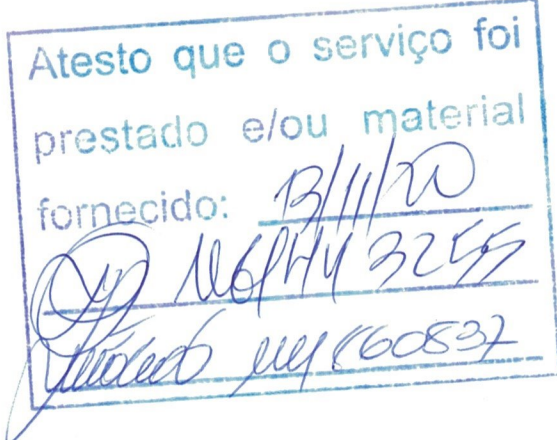 Atesto que o serviço foi
prestado e/ou material
fornecido: 13/11/20
3255
860837